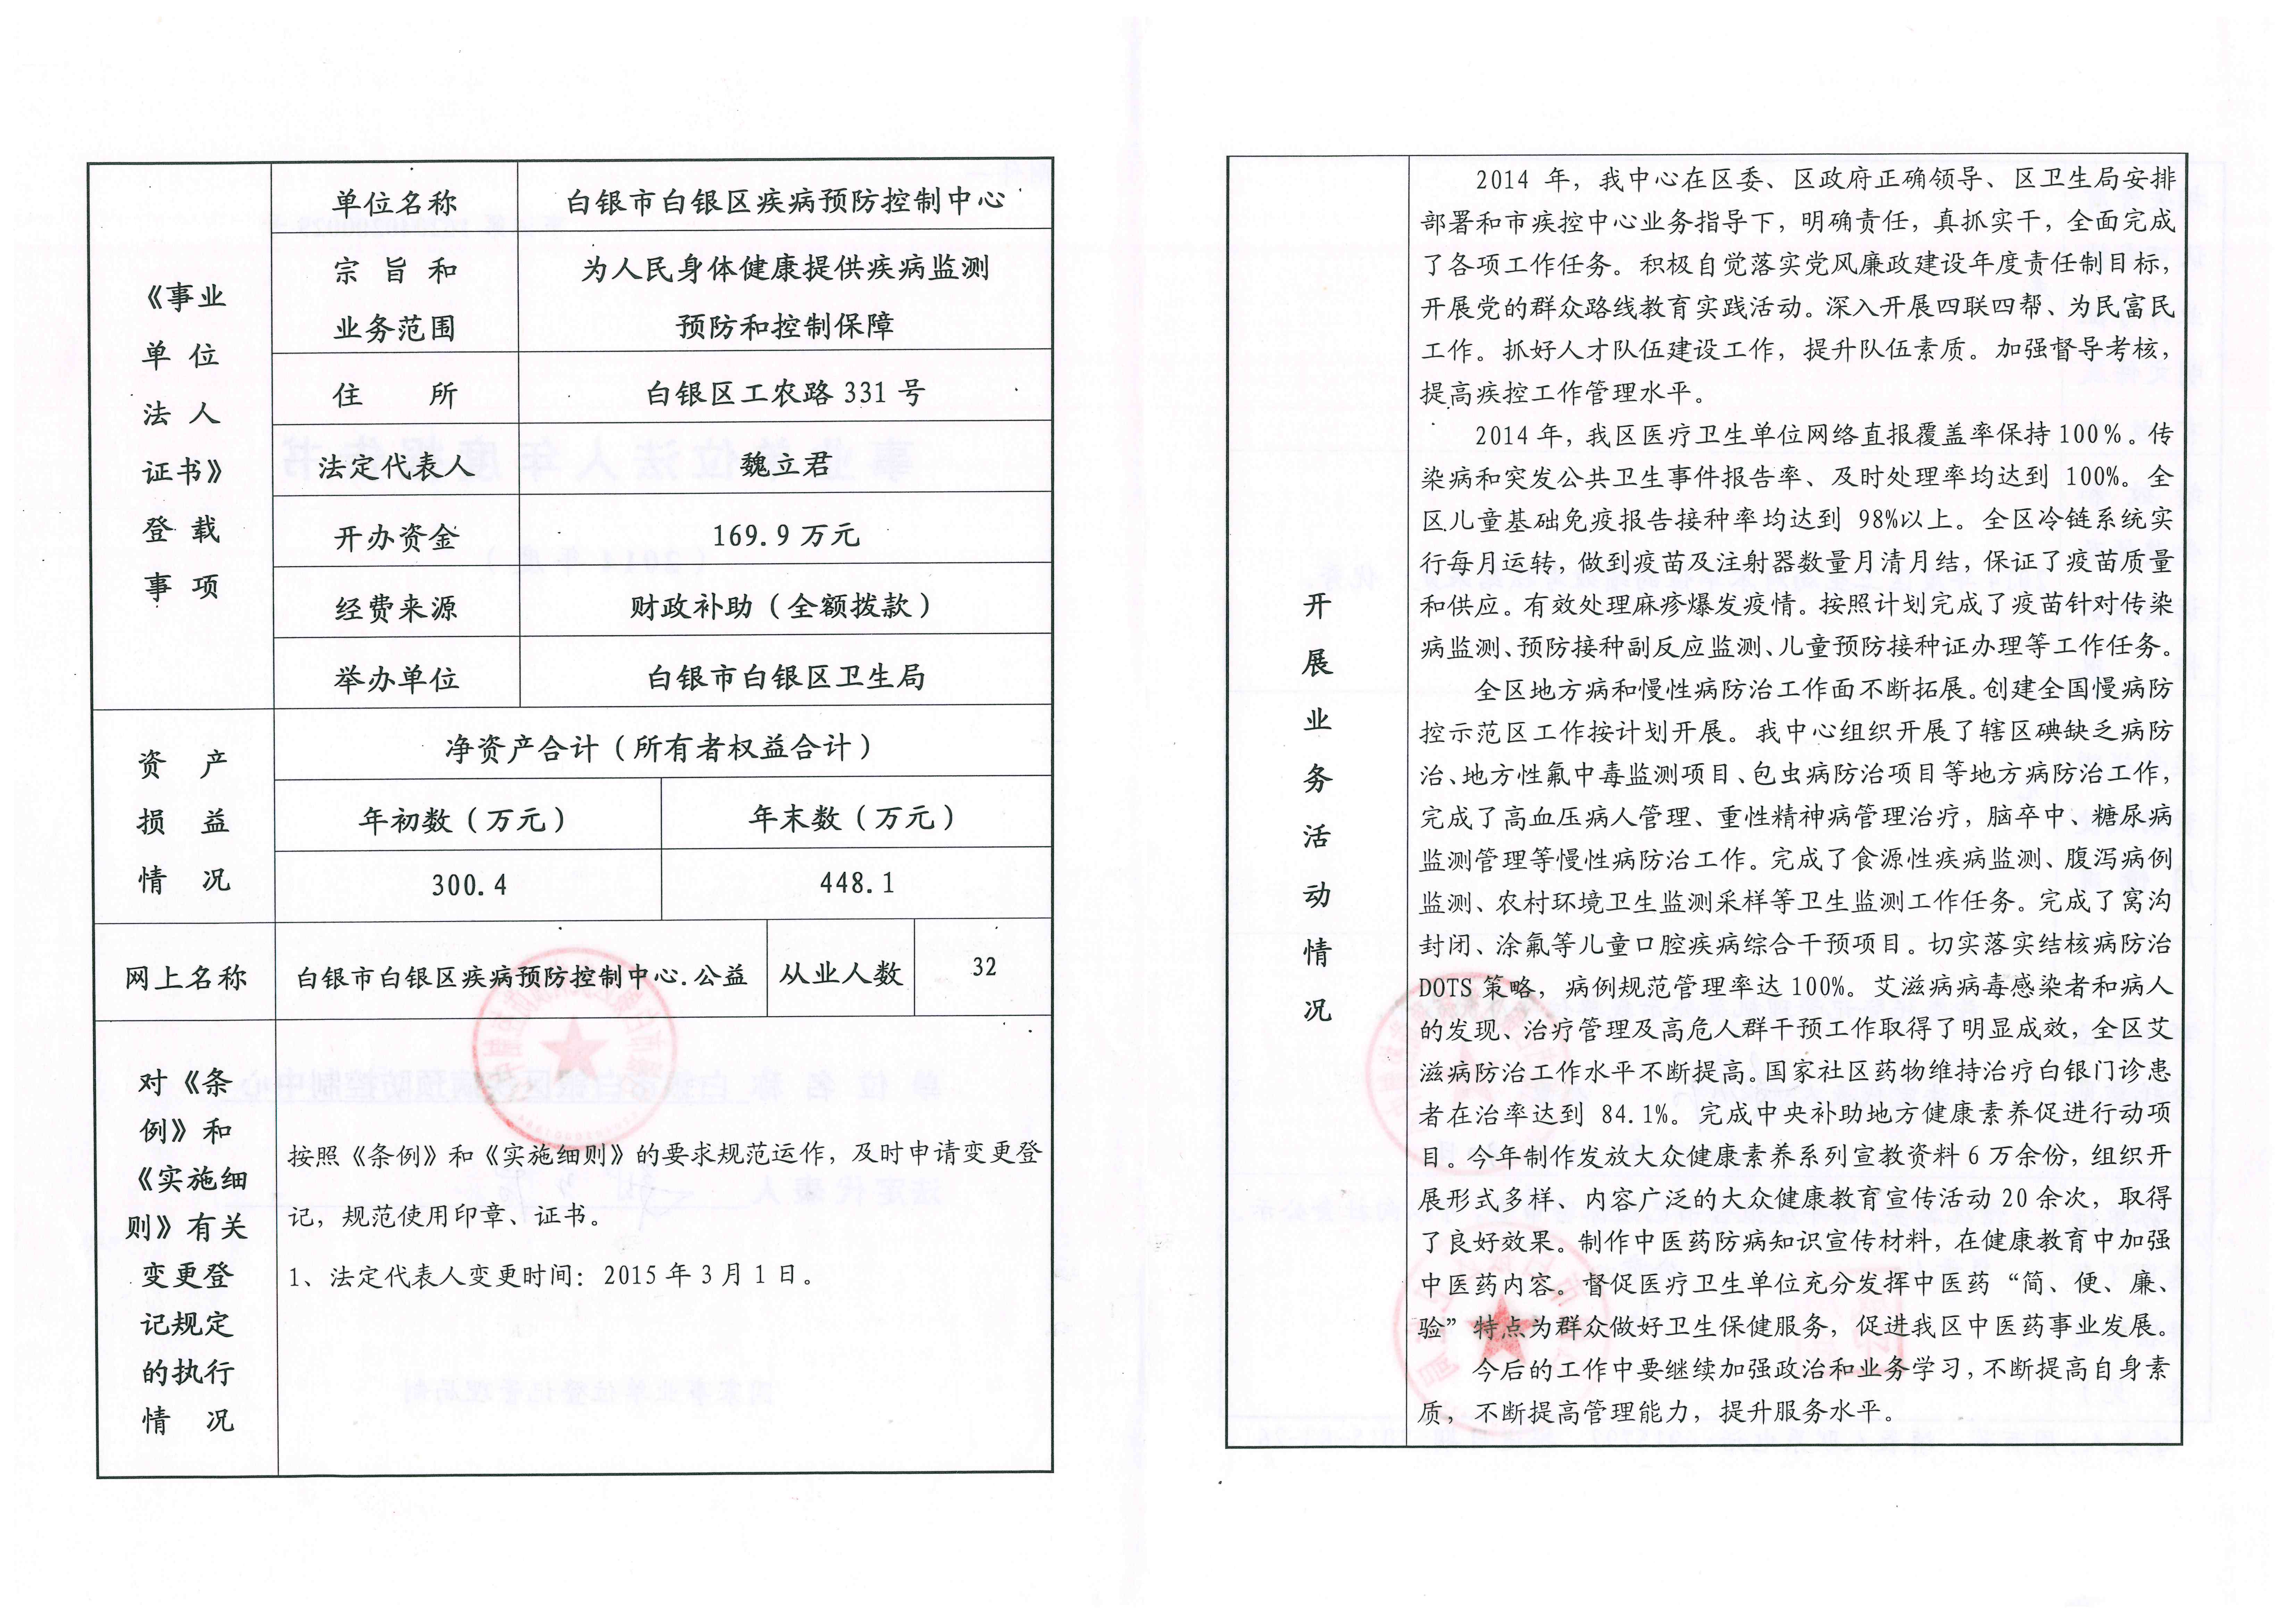 《事业
单 位
法 人
证书》
登 载
事 项
单位名称
白银市白银区疾病预防控制中心
宗 旨 和
业务范围
为人民身体健康提供疾病监测
预防和控制保障
住 所
白银区工农路 331 号
法定代表人
魏立君
开办资金
169.9 万元
经费来源
财政补助（全额拨款）
举办单位
白银市白银区卫生局
资 产
损 益
情 况
净资产合计（所有者权益合计）
年初数（万元）
年末数（万元）
300.4
448.1
网上名称
白银市白银区疾病预防控制中心.公益
从业人数
32
对《条
例》和
《实施细
则》有关
变更登
记规定
的执行
情 况
按照《条例》和《实施细则》的要求规范运作，及时申请变更登
记，规范使用印章、证书。
1、法定代表人变更时间：2015 年 3 月 1 日。
开
展
业
务
活
动
情
况
2014 年，我中心在区委、区政府正确领导、区卫生局安排
部署和市疾控中心业务指导下，明确责任，真抓实干，全面完成
了各项工作任务。积极自觉落实党风廉政建设年度责任制目标，
开展党的群众路线教育实践活动。深入开展四联四帮、为民富民
工作。抓好人才队伍建设工作，提升队伍素质。加强督导考核，
提高疾控工作管理水平。
2014 年，我区医疗卫生单位网络直报覆盖率保持 100%。传
染病和突发公共卫生事件报告率、及时处理率均达到 100%。全
区儿童基础免疫报告接种率均达到 98%以上。全区冷链系统实
行每月运转，做到疫苗及注射器数量月清月结，保证了疫苗质量
和供应。有效处理麻疹爆发疫情。按照计划完成了疫苗针对传染
病监测、预防接种副反应监测、儿童预防接种证办理等工作任务。
全区地方病和慢性病防治工作面不断拓展。创建全国慢病防
控示范区工作按计划开展。我中心组织开展了辖区碘缺乏病防
治、地方性氟中毒监测项目、包虫病防治项目等地方病防治工作，
完成了高血压病人管理、重性精神病管理治疗，脑卒中、糖尿病
监测管理等慢性病防治工作。完成了食源性疾病监测、腹泻病例
监测、农村环境卫生监测采样等卫生监测工作任务。完成了窝沟
封闭、涂氟等儿童口腔疾病综合干预项目。切实落实结核病防治
DOTS 策略，病例规范管理率达 100%。艾滋病病毒感染者和病人
的发现、治疗管理及高危人群干预工作取得了明显成效，全区艾
滋病防治工作水平不断提高。国家社区药物维持治疗白银门诊患
者在治率达到 84.1%。完成中央补助地方健康素养促进行动项
目。今年制作发放大众健康素养系列宣教资料 6 万余份，组织开
展形式多样、内容广泛的大众健康教育宣传活动 20 余次，取得
了良好效果。制作中医药防病知识宣传材料，在健康教育中加强
中医药内容。督促医疗卫生单位充分发挥中医药“简、便、廉、
验”特点为群众做好卫生保健服务，促进我区中医药事业发展。
今后的工作中要继续加强政治和业务学习，不断提高自身素
质，不断提高管理能力，提升服务水平。